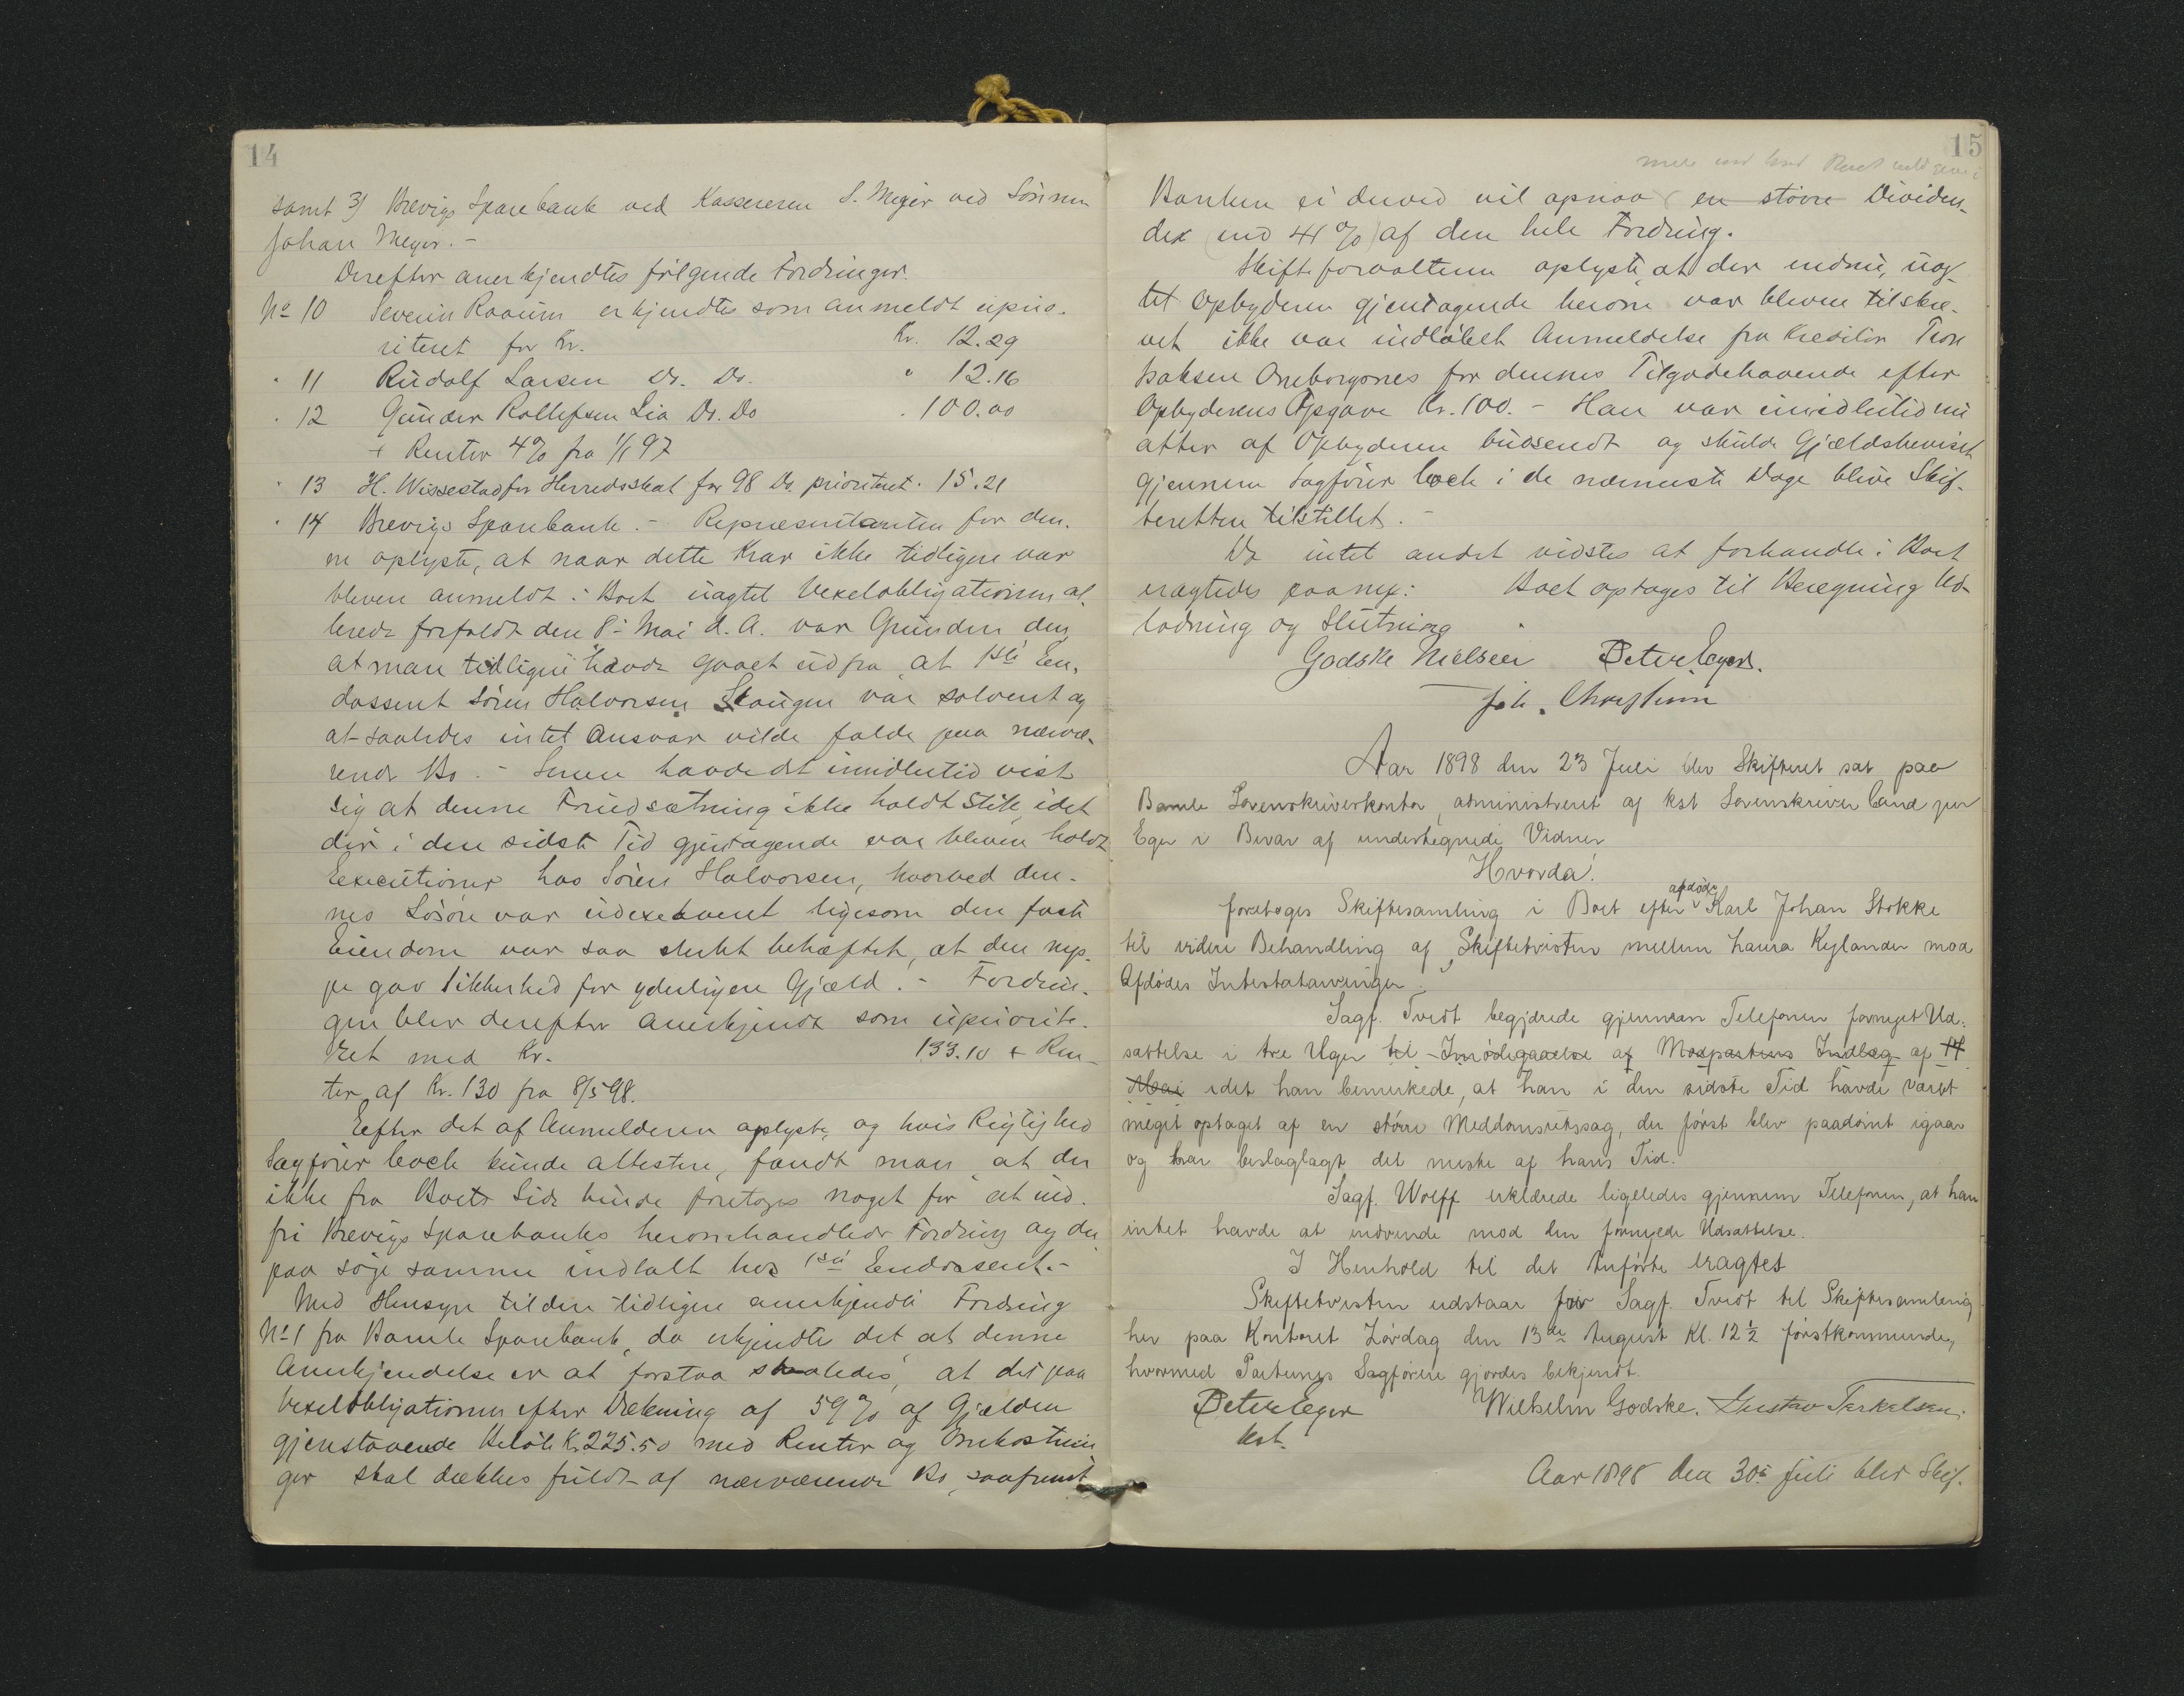 14
samt 3) Brevigs Sparebank ved Kassereren S. Meyer ved Sönnen
Johan Meyer. -
Derefter anerkjendtes fölgende Fordringer.
No 10 Severin Raaum erkjendtes som anmeldt uprio-
riteret for Kr. Kr. 12.29
" 11 Rudolf Larsen Do. Do. " 12.16
" 12 Gunder Rollefsen Lia Do. Do " 100.00
+ Renter 4% fra 1/1 97
" 13 H. Wissestad for Herredsskat for 98 Do. prioriteret. 15.21
" 14 Brevigs Sparebank. - Repræsentanten for den-
ne oplyste, at naar dette Krav ikke tidligere var
bleven anmeldt i Boet uagtet Vexelobligationen al-
lerede forfaldt den 8de Mai d. A. var Grunden den,
at man tidligere havde gaaet ud fra, at 1ste En-
dossent Sören Halvorsen Skougen var solvent og
at saaledes intet Ansvar vilde falde paa nærvæ-
rende Bo. - Senere havde det imidlertid vist
sig at denne Forudsætning ikke holdt Stik, idet
der i den sidste Tid gjentagende var bleven holdt
Executioner hos Sören Halvorsen, hvorved den-
nes Lösöre var udexekveret ligesom den faste
Eiendom var saa sterkt behæftet, at den nep-
pe gav Sikkerhed for yderligere Gjæld. - Fordrin-
gen blev derefter anerkjendt som upriorite-
ret med Kr. 133.10 + Ren-
ter af Kr. 130 fra 8/5 98.
Eefter det af Anmelderen oplyste, og hvis Rigtighed
Sagförer Coch kunde attestere, fandt man at der
ikke fra Boets Side burde foretages noget for at ind-
fri Brevigs Sparebanks heromhandlede Fordring og der-
paa söge samme indtalt hos 1ste Endossent. -
Med Hensyn til den tidligere anerkjendte Fordring
No 1 fra Bamle Sparebank, da erkjendte det at denne
Anerkjendelse er at forstaa saaledes, at det paa
Vexelobligationen efter Dækning af 59% af Gjælden
gjenstaaende Belöb Kr. 225.50 med Renter og Omkostnin-
ger skal dækkes fuldt af nærværende Bo, saafremt
15
Banken ei derved vil opnaa (en större Dividen-
de (end 41%) af den hele Fordring.
Skifteforvalteren oplyste, at der endnu, uag-
tet Opbyderen gjentagende herom var bleven tilskre-
vet ikke var indlöbet Anmeldelse fra Kreditor Tron
Isaksen Omborgsnes for dennes Tilgodehavende efter
Opbyderens Opgave Kr. 100. - Han var imidlertid nu
atter af Opbyderen budsendt og skulde Gjældsbeviset
gjennem Sagförer Coch i de nærmeste Dage blive Skif-
teretten tilstillet. -
Da intet andet vidstes at forhandle i Boet
eragtedes paany: Boet optages til Beregning Ud-
lodning og Slutning
Godske Nielseen Peter Eger.
Joh. Christensen
Aar 1898 den 23 Juli blev Skifteret sat paa
Bamle Sorenskriverkontor, administreret af kst Sorenskriver Cand jur
Eger i Bivær af undertegnede Vidner
Hvorda!
foretoges Skiftesamling i Boet efter afdøde Karl Johan Stokke
til videre Behandling af Skiftetvisten mellem Laura Kylander mod
Afdødes Intestatarvinger.
Sagf. Tvedt begjærede gjennem Telefonen fornyet Ud-
sættelse i tre Uger til Imødegaaelse af Modpartens Indlæg af 14
Mai idet han bemerkede, at han i den sidste Tid havde været
meget optaget af en større Meddomsretssag, der først blev paadømt igaar
og har beslaglagt det meste af hans Tid.
Sagf. Wolff erklærede ligeledes gjennem Telefonen, at han
intet havde at indvende mod den fornyede Udsættelse.
I Henhold til det Anførte eragtet
Skiftetvisten udstaar for Sagf. Tvedt til Skiftesamling
her paa Kontoret Lørdag den 13de August Kl. 12 1/2 førstkommende,
hvormed Parternes Sagførere gjordes bekjendt.
Peter Eger Wilhelm Godske. Gustav Terkelsen.
kst.
Aar 1898 den 30te Juli blev Skif-